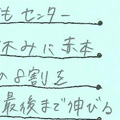 もセンター
休みに赤本
の8割を
最後まで伸びる